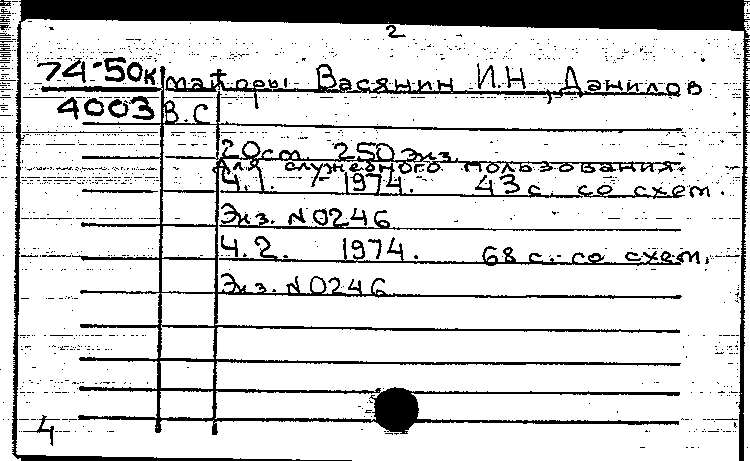 2
74-50к майоры Васянин И.Н., Данилов
4003 В.С
20 см. 250 экз.
Для служебного пользования.
Ч.1. - 1974. 43 с. со схем.
Экз. N 0246
Ч.2. 1974. 68 с. со схем.
Экз. N 0246
4